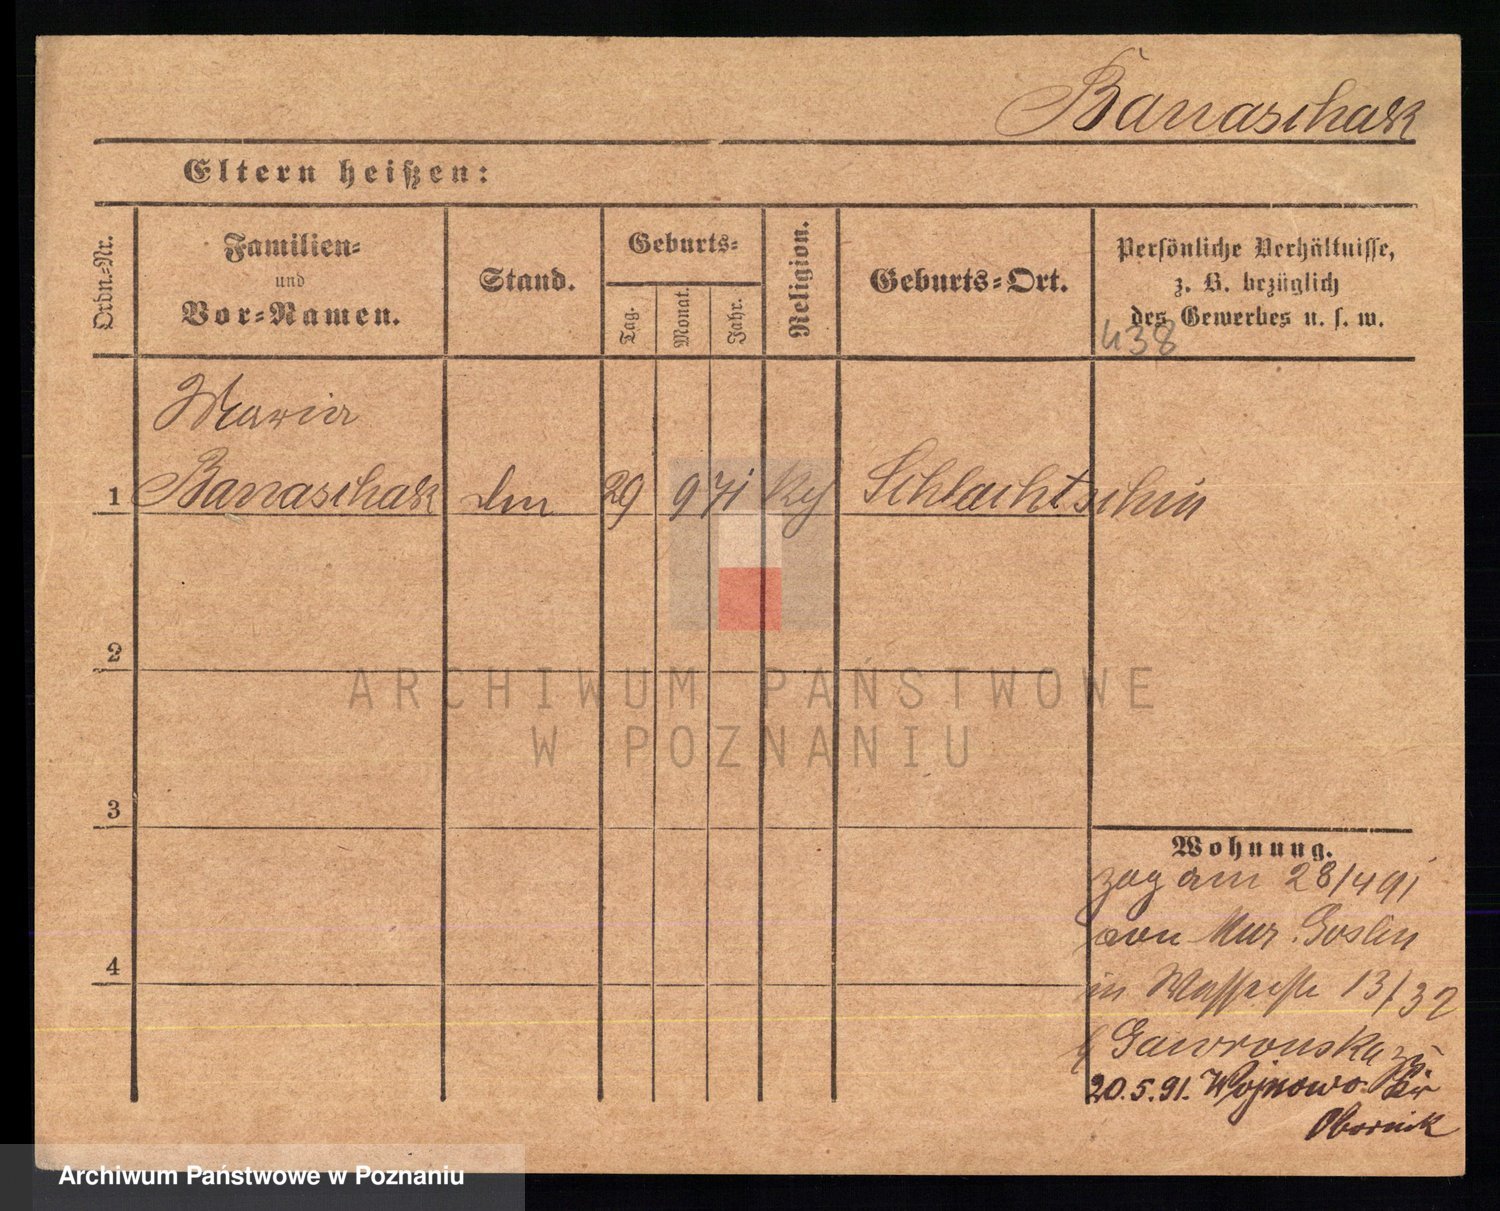 Banaschak
Eltern heißen:
Ordn.-Nr.
Familien-
und
Vor-Namen.
Stand.
Geburts-
Tag.
Monat.
Jahr.
Religion.
Geburts-Ort.
Persönliche Verhältnisse,
z. B. bezüglich
des Gewerbes u. s. w.
438
Maria
1 Banaschak 29 9 71 Schlachtschin
2
3
4
Wohnung.
zog am 28/4 91
von Mur. Goslin
in 13/32
Gawronska
20.5.91. Wojnowo Kr
Obornik
ARCHIWUM PAŃSTWOWE
W POZNANIU
Archiwum Państwowe w Poznaniu